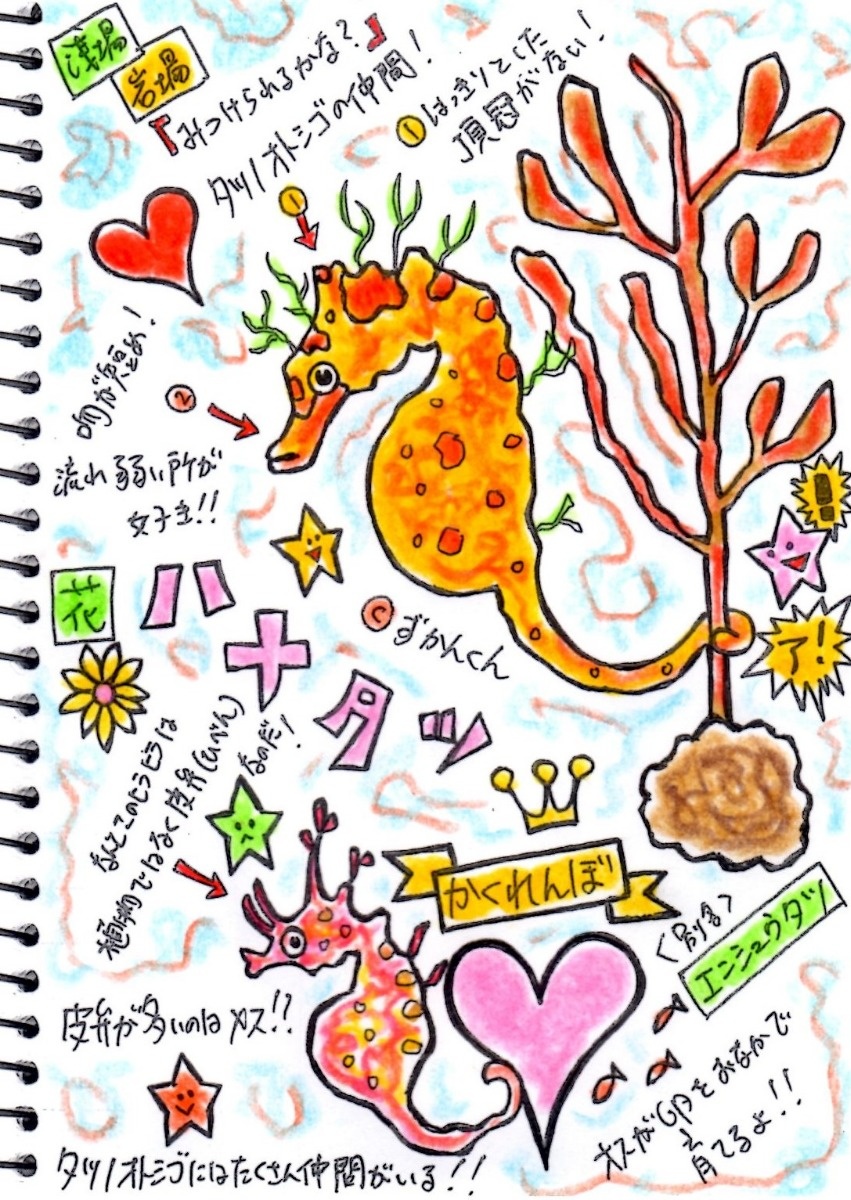 浅場
岩場
『みつけられるかな？』
タツノオトシゴの仲間！
①はっきりとした
頂冠がない！
①
吻が短め！
②
流れ弱い所が
好き!!
花
ハナタツ
©ずかんくん
!!
ア！
なんとこのヒラヒラは
植物ではなく皮弁(ひべん)
なのだ！
かくれんぼ
<別名>
エンシュウタツ
皮弁が多いのはメス!?
オスが卵をおなかで
育てるよ!!
タツノオトシゴにはたくさん仲間がいる!!